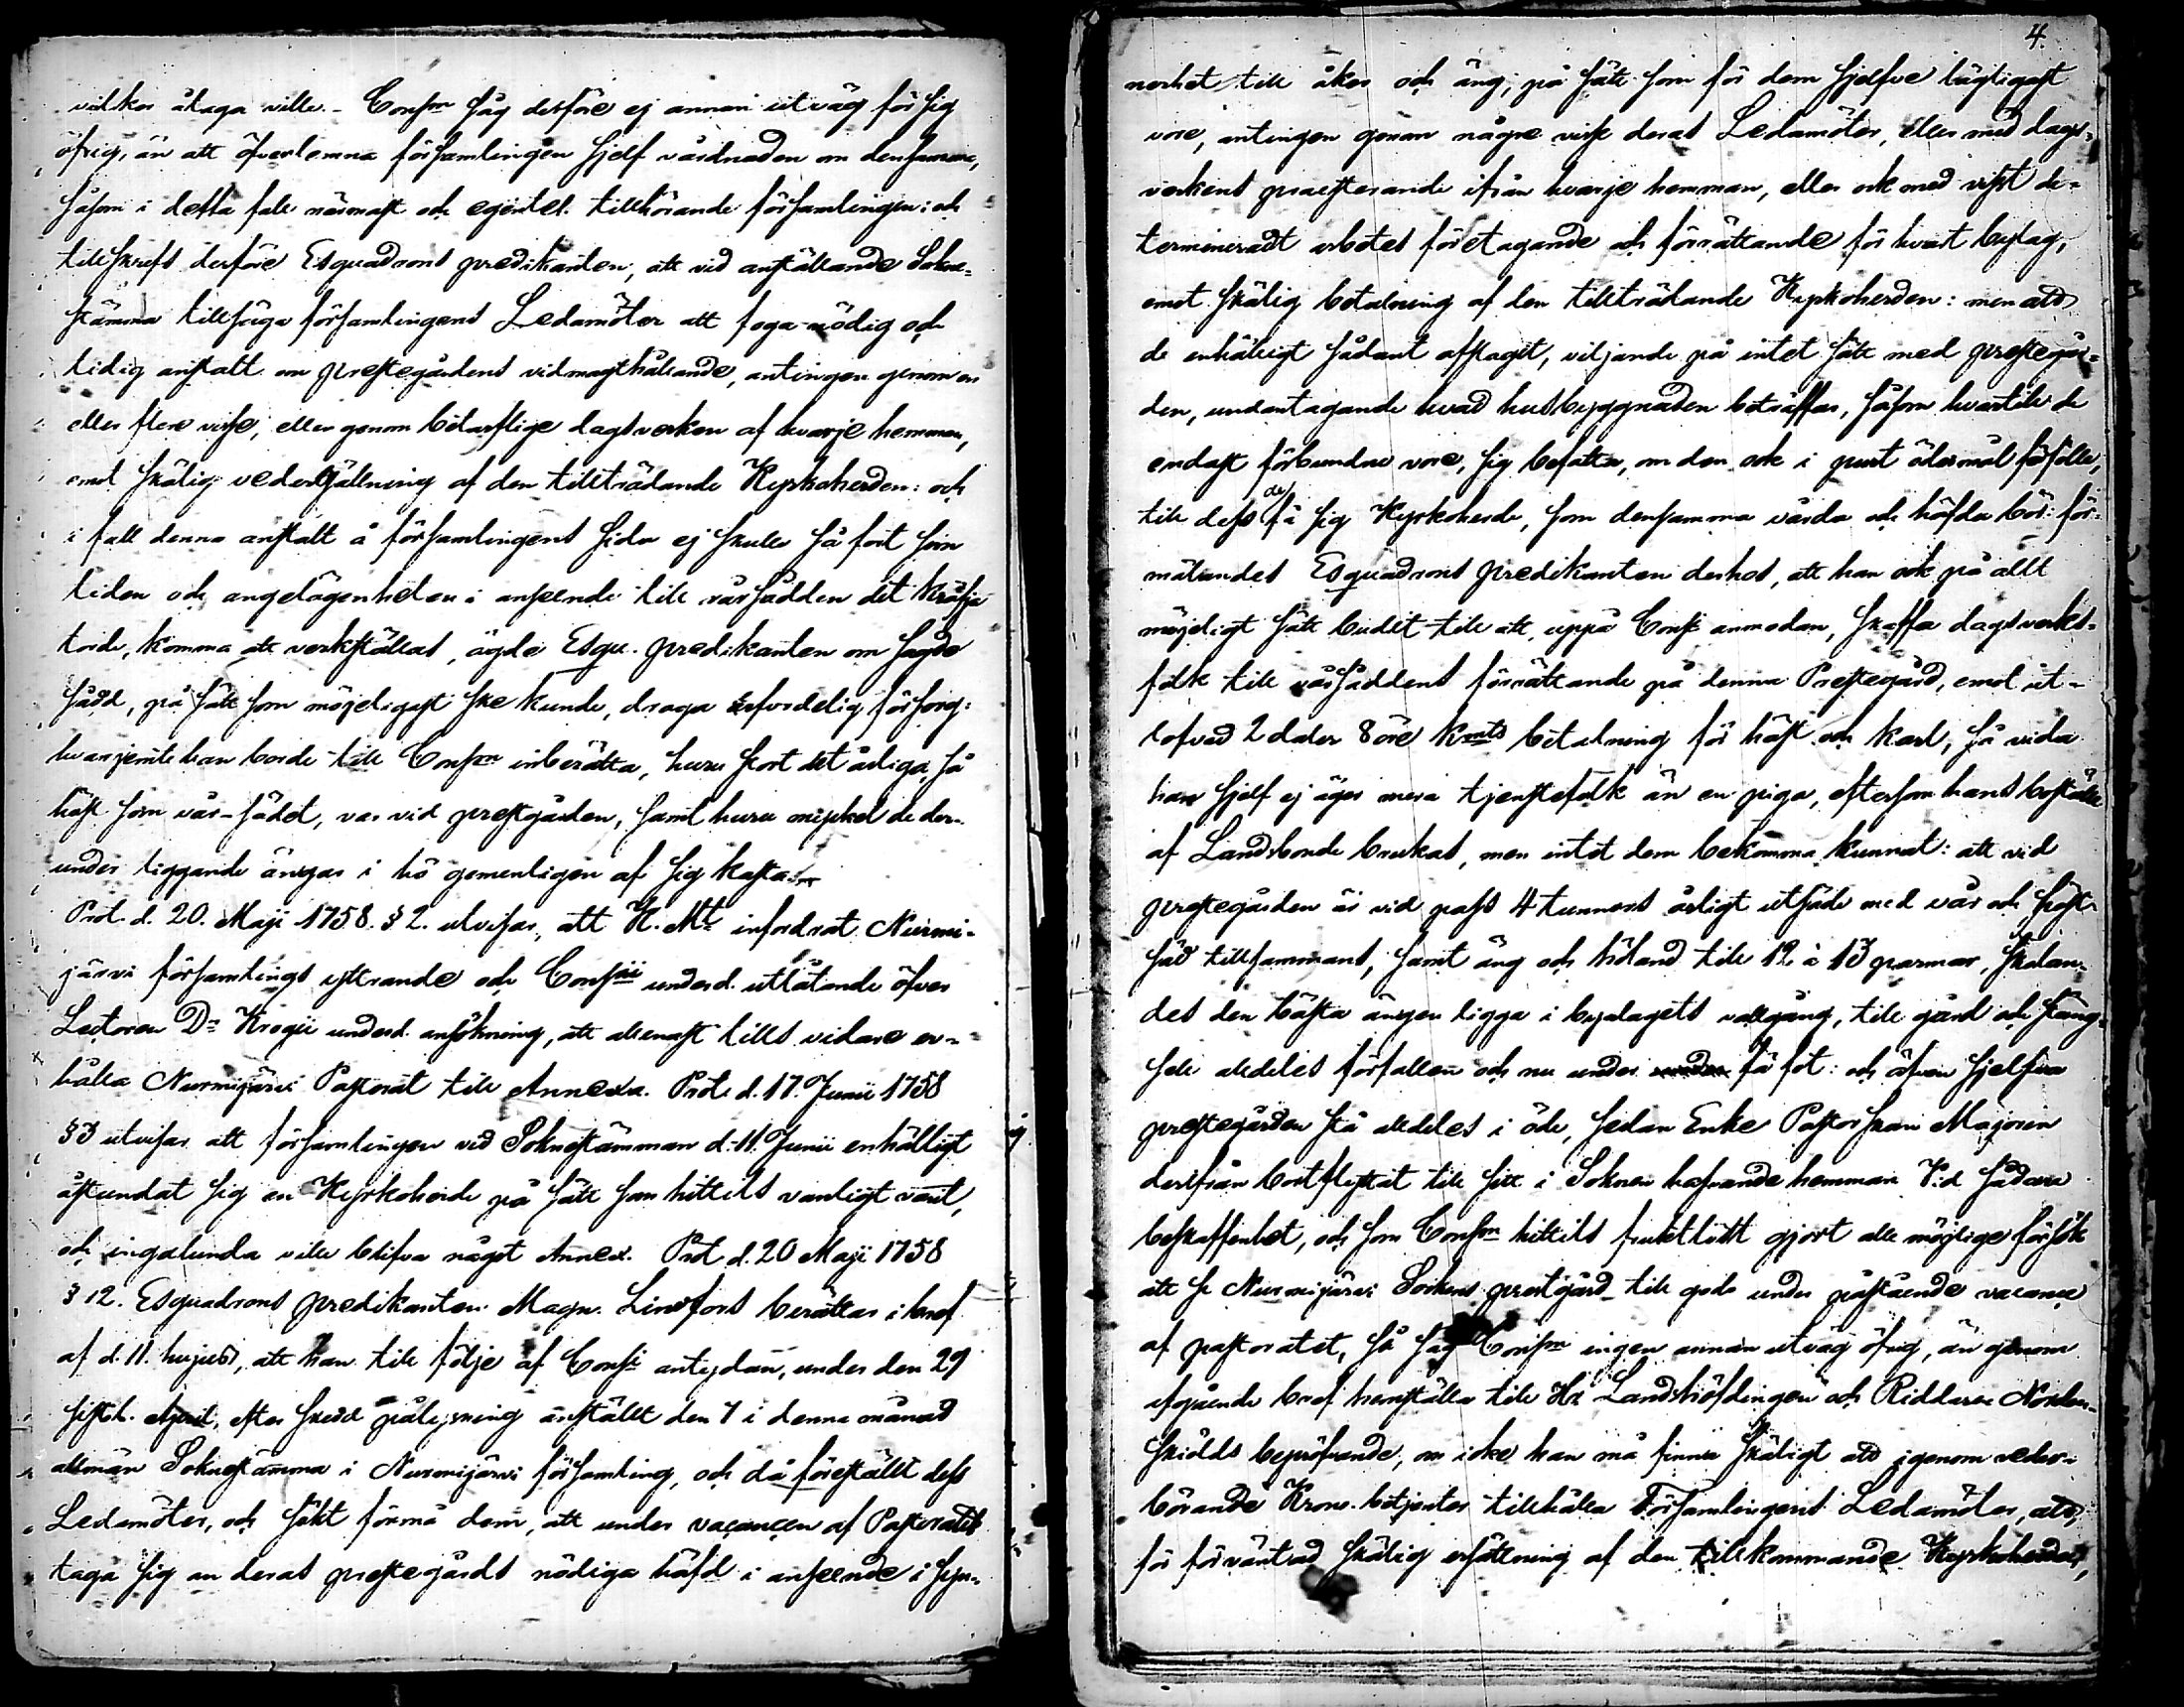 vilkor åtaga ville. - Consm såg derföre ej annan utväg för sig
öfrig, än att öfverlemna församlingen sjelf vårdnaden om densamma,
såsom i detta fall närmast och egentel. tillhörande församlingen: och
tillskrefs derföre Esquadrons predikanten, att vid anställande Sokne-
stämma tillsäga församlingens Ledamöter att foga nödig och
tidig anstalt om prestegårdens vidmagthållande, antingen genom en
eller flere visse, eller genom betarflige dagsverken af hvarje hemman,
emot skälig vedergällning af den tillträdande Kyrkoherden: och
i fall denna anstalt å församlingens sida ej skulle så fort som
tiden och angelägenheten i anseende till vårsädden det kräfja
torde, komma att verkställas, ägde Esqu. predikanten om sagde
sådd, på sätt som möjeligast ske kunde, draga erforderlig försorg:
hvarjemte han borde till Consm inberätta, huru stort det årliga, så
höst som vår-sädet, var vid prestgården, samt huru mycket de der-
under liggande ängar i hö gemenligen af sig kasta.
Prot. d. 20. Maji 1758. § 2. utvisar, att K. Mt infordrat Nurmi-
järvi församlings yttrande och Consii underd. utlåtande öfver
Lectoren Dn Krogii underd. ansökning, att allenast tills vidare er-
hålla Nurmijärvi Pastorat till Annexa. Prot. d. 17. Junii 1758
§ 3 utvisar att församlingen vid Soknestämman d. 11 Junii enhälligt
åstundat sig en Kyrkoherde på sätt som hittils vanligt varit,
och ingalunda ville blifva något Annex. Prot d. 20 Maji 1758
§ 12. Esquadrons predikanten Magn. Lindfors berättar i bref
af d. 11. hujus, att han till följe af Consii antydan, under den 29
sistl. April, efter skedd pålysning anställt den 7 i denna månad
allmän Soknestämma i Nurmijärvi församling, och då föreställt dess
Ledamöter, och sökt förmå dem, att under vacancen af Pastoratet
taga sig an deras prestegårds nödiga häfd i anseende i syn-
4.
nerhet till åker och äng, på sätt som för dem sjelfve lägligast
vore, antingen genom några visse deras Ledamöter, eller med dags-
verkens praesterande ifrån hvarje hemman, eller ock med visst de-
termineradt arbetes företagande och förrättande för hvart bylag,
emot skälig betalning af den tillträdande Kyrkoherden: men att
de enhälligt sådant afslagit, viljande på intet sätt med prestegår-
den, undantagande hvad husbyggnaden beträffar, såsom hvartill de
endast förbundne vore, sig befatta, om den ock i purt ödesmål förfölle,
till dess de få sig Kyrkoherde, som densamma vårda och häfda bör: för-
mälandes Esquadrons predikanten derhos, att han ock på allt
möjeligt sätt budit till att, uppå Consii anmodan, skaffa dagsverks-
folk till vårsäddens förrättande på denna Prestegård, emot ut-
lofvad 2 daler 8 öre kmts betalning för häst och karl, så vida
han sjelf ej äger mera tjenstefolk än en piga, eftersom hans boställe
af Landbonde brukas, men intet dem bekomma kunnat: att vid
prestegården är vid pass 4 tunnors årligt utsäde med vår och höst-
säd tillsammans, samt äng och höland till 12 à 13 parmar, skolan-
des den bästa ängen ligga i byalagets vallgång, till gärd och stäng-
sel alldeles förfallen och nu under få fot: och äfven sjelfva
prestegården stå alldeles i öde, sedan Enke Pastorskan Majorin
derifrån bortflyttat till sitt i Soknen hafvande hemman. Vid sådana
beskaffenhet, och som Consm hittils fruktlöst gjort alle möjelige försök
att se Nurmijärvi Sokens prestgård till godo under påstående vacance
af pastoratet, så såg Consm ingen annan utväg öfrig, än genom
afgående bref hemställa till Hr Landshöfdingen och Riddaren Norden-
skiölds bepröfvande, om icke han må finna skäligt att igenom veder-
börande Krono betjenter tillhålla Församlingens Ledamöter, att,
för förväntad skälig ersättning af den tillkommande Kyrkoherden,